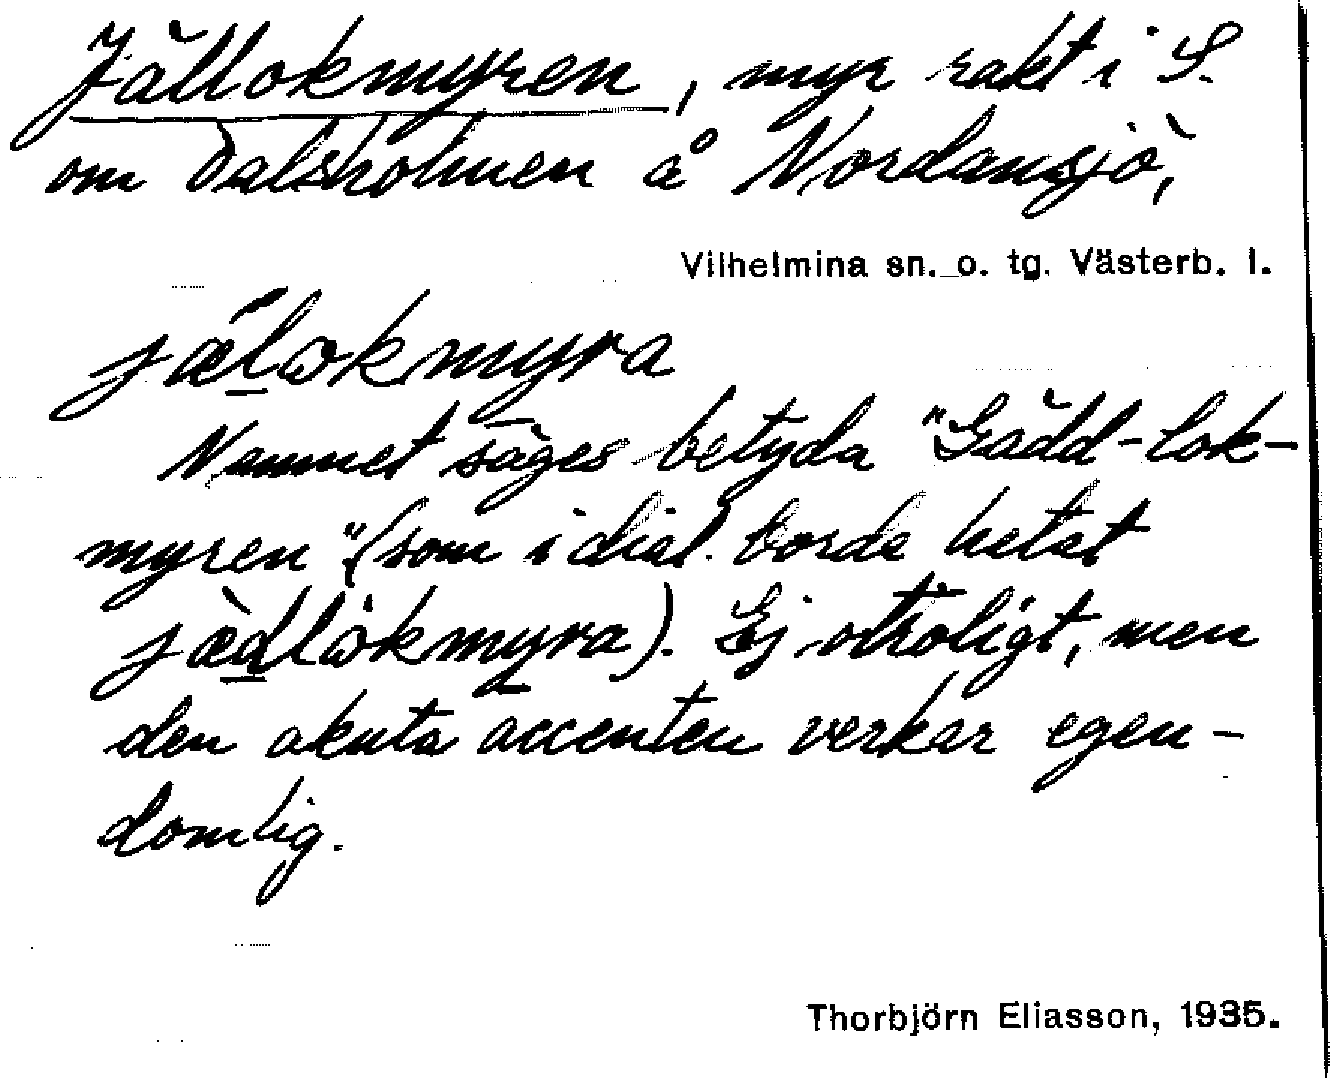 Jällokmyren, myr rakt i S.
om Dalsholmen å Nordansjö,
Vilhelmina sn. o. tg. Västerb. l.
jælokmyra
Namnet säges betyda "Gädd-lok-
myren" (som i dial. borde hetat
jædlokmyra). Ej otroligt, men
den akuta accenten verkar egen-
domlig.
Thorbjörn Eliasson, 1935.